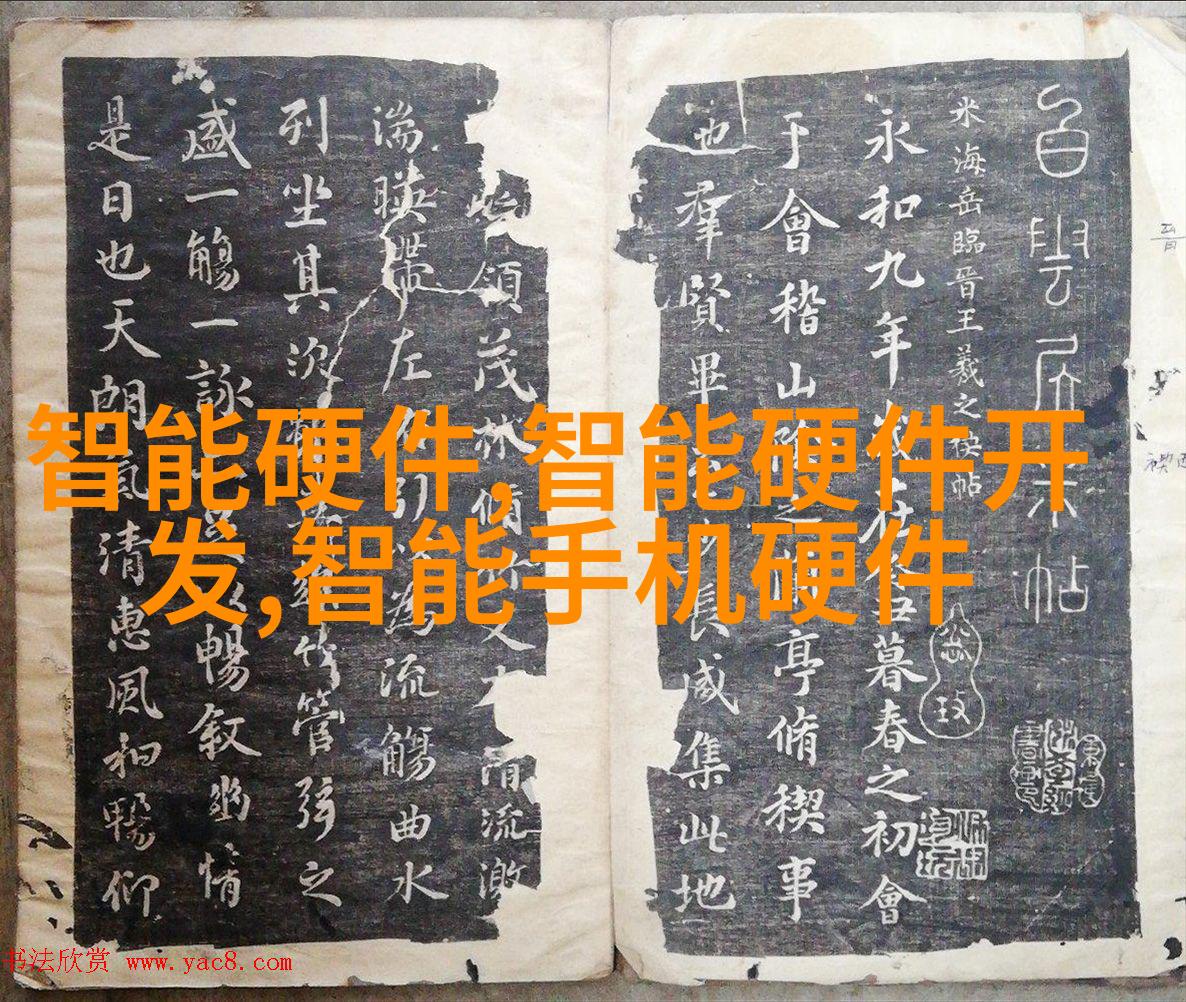 白雲居米帖
米海岳臨晉王羲之禊帖
永和九年歲在丑暮春之初會
于會稽山陰之亭脩禊事
也羣賢畢至少長咸集此地
領茂林脩竹又有清流激
湍暎帶左右引以為流觴曲水
列坐其次雖無絲竹管弦之
盛一觴一詠足以暢叙幽情
是日也天朗氣清惠風和暢仰
智能硬件,智能硬件开
发,智能手机硬件
书法欣赏 www.yac8.com